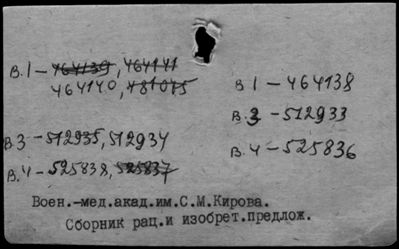 В.1 – 464139, 464141
464140, 481045
В.3 – 512935, 512934
В.4 – 525838, 525837
В 1 – 464138
В.3 – 512933
В.4 – 525836
Воен.-мед.акад.им.С.М.Кирова.
Сборник рац.и изобрет.предлож.